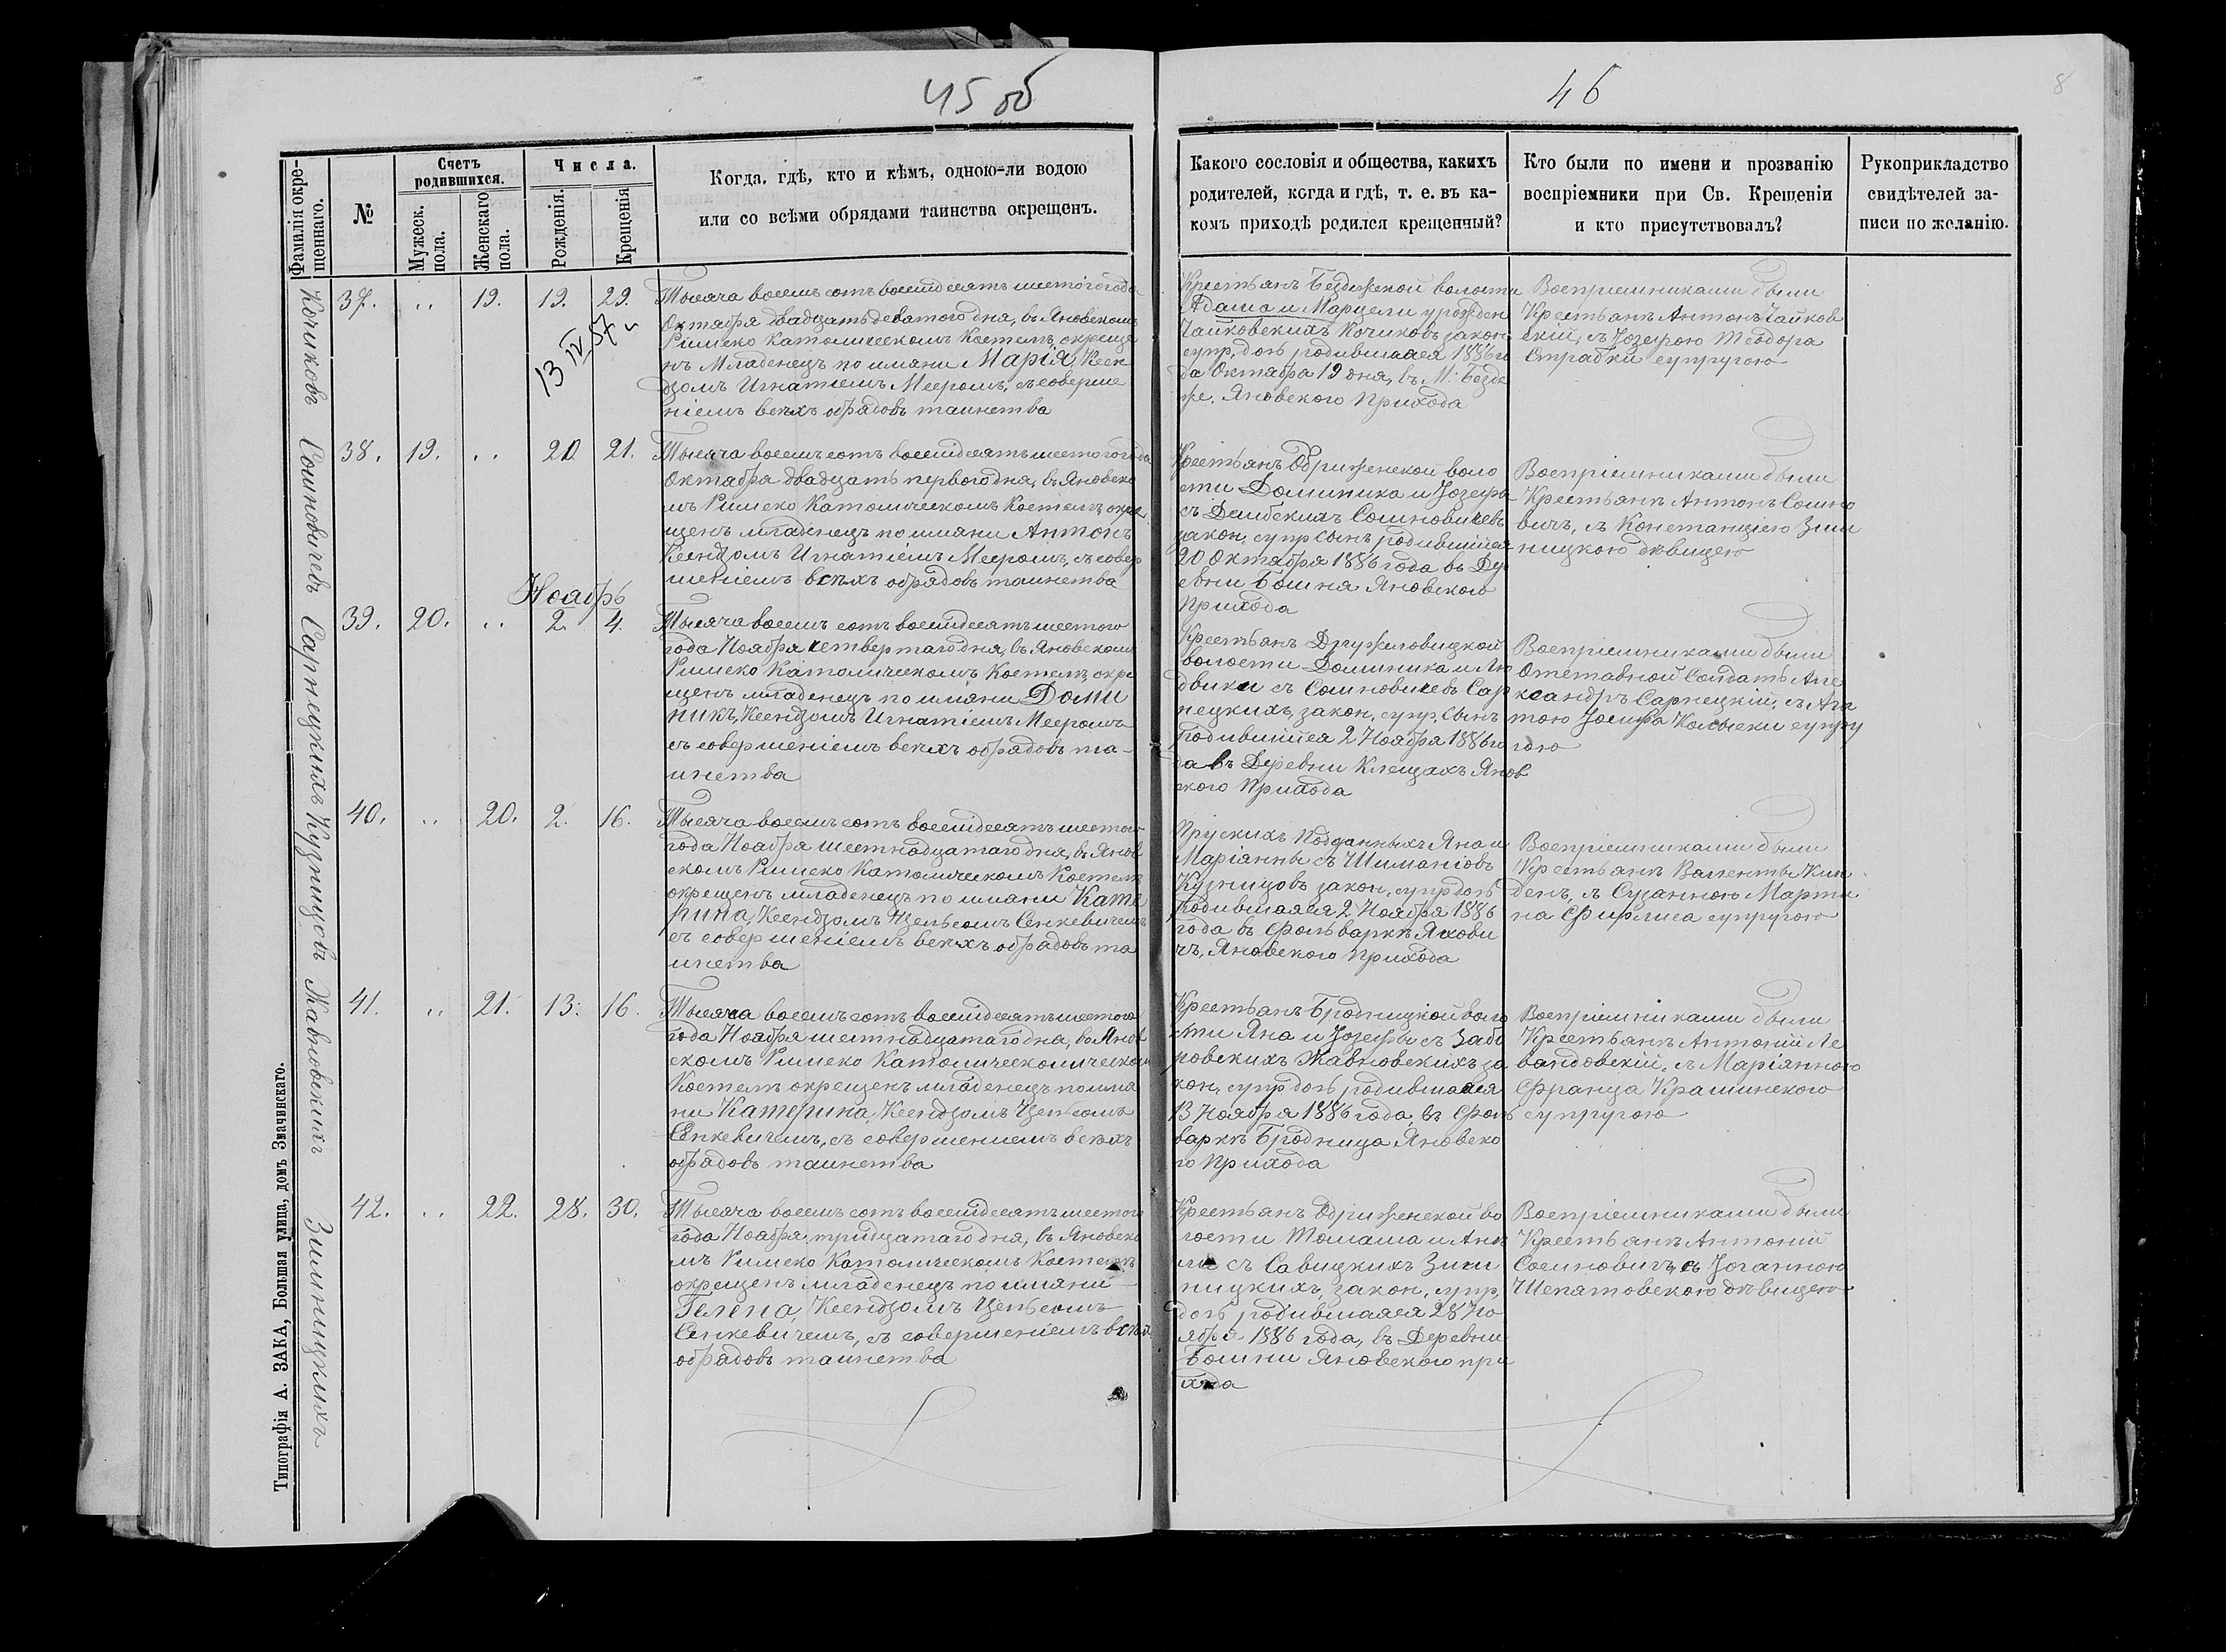 45 об
46
8
Фамилія окре-
щеннаго.
№
Счетъ
родившихся.
Мужеск.
пола.
Женскаго
пола.
Числа.
Рожденія.
Крещенія
Когда, гдѣ, кто и кѣмъ, одною-ли водою
или со всѣми обрядами таинства окрещенъ.
Какого сословія и общества, какихъ
родителей, когда и гдѣ, т. е. въ ка-
комъ приходѣ родился крещенный?
Кто были по имени и прозванію
воспріемники при Св. Крещеніи
и кто присутствовалъ?
Рукоприкладство
свидѣтелей за-
писи по желанію.
Кочиковъ
37. .. 19. 19. 29.
13 IV 57
Тысяча восемьсотъ восемідесятъ шестого года
Октября двадцать девятого дня, въ Яновскомъ
Римско Католическомъ Костелѣ, окреще
нъ Младенецъ по имяни Марія, Ксен
дзомъ Игнатіемъ Мееромъ, съ соверше
ніемъ всѣхъ обрядовъ таинства
Крестьянъ Бездежской волости
Адама и Марцели урожден
Чайковскихъ Кочиковъ закон
супр, дочь родившаяся 1886 го
да Октября 19 дня, въ М. Безде
же. Яновского Прихода
Воспріемниками были
Крестьянъ Антонъ Чайков
скій, съ Іозефою Теодора
Страбки супругою
Сошновичевъ
38. 19. .. 20 21.
Тысяча восемьсотъ восемідесятъ шестого года
Октября двадцать первого дня, въ Яновско
мъ Римско Католическомъ Костелѣ окре
щенъ младенецъ по имяни Антонъ
Ксендзомъ Игнатіемъ Мееромъ, съ совер
шеніемъ всѣхъ обрядовъ таинства
Крестьянъ Одриженской воло
сти Доминика и Іозефы
съ Дембскихъ Сошновичевъ
закон, супр сынъ родившійся
20 Октября 1886 года въ Де
ревни Бошня Яновского
Прихода
Воспріемниками были
Крестьянъ Антонъ Сошно
вичъ, съ Констанціею Зим
ницкою дѣвицею
Ноябрь
Сарнецкихъ
39. 20. .. 2. 4.
Тысяча восемь сотъ восемідесятъ шестого
года Ноября четвертаго дня, въ Яновскомъ
Римско Католическомъ Костелѣ, окре
щенъ младенецъ по имяни Доми
никъ, Ксендзомъ Игнатіемъ Мееромъ
съ совершеніемъ всѣхъ обрядовъ та-
инства
Крестьянъ Дружиловицкой
волости Доминика и Лю
двики съ Сошновичевъ Сар
нецкихъ, закон, супр, Сынъ
родившійся 2 Ноября 1886 го
да въ Деревни Клещахъ Янов
ского Прихода
Воспріемниками были
Отставной Солдатъ Але
ксандръ Сарнецкій, съ Ага
тою Іосифа Колыски супру
гою
Кузницовъ
40. .. 20. 2. 16.
Тысяча восемьсотъ восемідесятъ шестого
года Ноября шестнадцатаго дня, въ Янов
скомъ Римско Католическомъ Костелѣ
окрещенъ младенецъ по имяни Кате
рина, Ксендзомъ Цельсомъ Сенкевичемъ
съ совершеніемъ всѣхъ обрядовъ та
инства
Прускихъ подданныхъ Яна и
Маріанны съ Шиманіовъ
Кузницовъ закон, супр дочь
родившаяся 2 Ноября 1886
года въ Фольваркѣ Яхови
чъ, Яновского Прихода
Воспріемниками были
Крестьянъ Валенты Кин
денъ, съ Сузанною Марти
на Фирлиса супругою
Жавновскихъ
41. .. 21. 13. 16.
Тысяча восемьсотъ восемідесятъ шестого
года Ноября шестнадцатаго дна, въ Янов
скомъ Римско Католическомическомъ
Костелѣ окрещенъ младенецъ по имя
ни Катерина, Ксендзомъ Цельсомъ
Сенкевичемъ, съ совершеніемъ всѣхъ
обрядовъ таинства
Крестьянъ Бродницкой воло
сти Яна и Іозефы съ Забо
ровскихъ Жавновскихъ за
кон, супр дочь родившаяся
13 Ноября 1886 года, въ Фоль
варкѣ Бродница Яновско
го Прихода
Воспріемниками были
Крестьянъ Антоній Ле
вандовскій, съ Маріанною
Франца Крашинского
супругою
Зимницкихъ
42. .. 22. 28. 30.
Тысяча восемь сотъ восемідесятъ шестого
года Ноября тридцатаго дня, въ Яновско
мъ Римско Католическомъ Костелѣ
окрещенъ младенецъ по имяни
Гелена, Ксендзомъ Цельсомъ
Сенкевичемъ, съ совершеніемъ всѣхъ
обрядовъ таинства
Крестьянъ Одриженской во
лости Томаша и Ане
ли съ Савицкихъ Зим
ницкихъ, закон, супр,
дочь родившаяся 28 Но
ября 1886 года, въ Деревни
Бошни Яновского при
хода
Воспріемниками были
Крестьянъ Антоній
Сосиновичъ, съ Іоганною
Шепятовскою дѣвицею
Типографія А. ЗАКА, Большая улица, домъ Значинскаго.